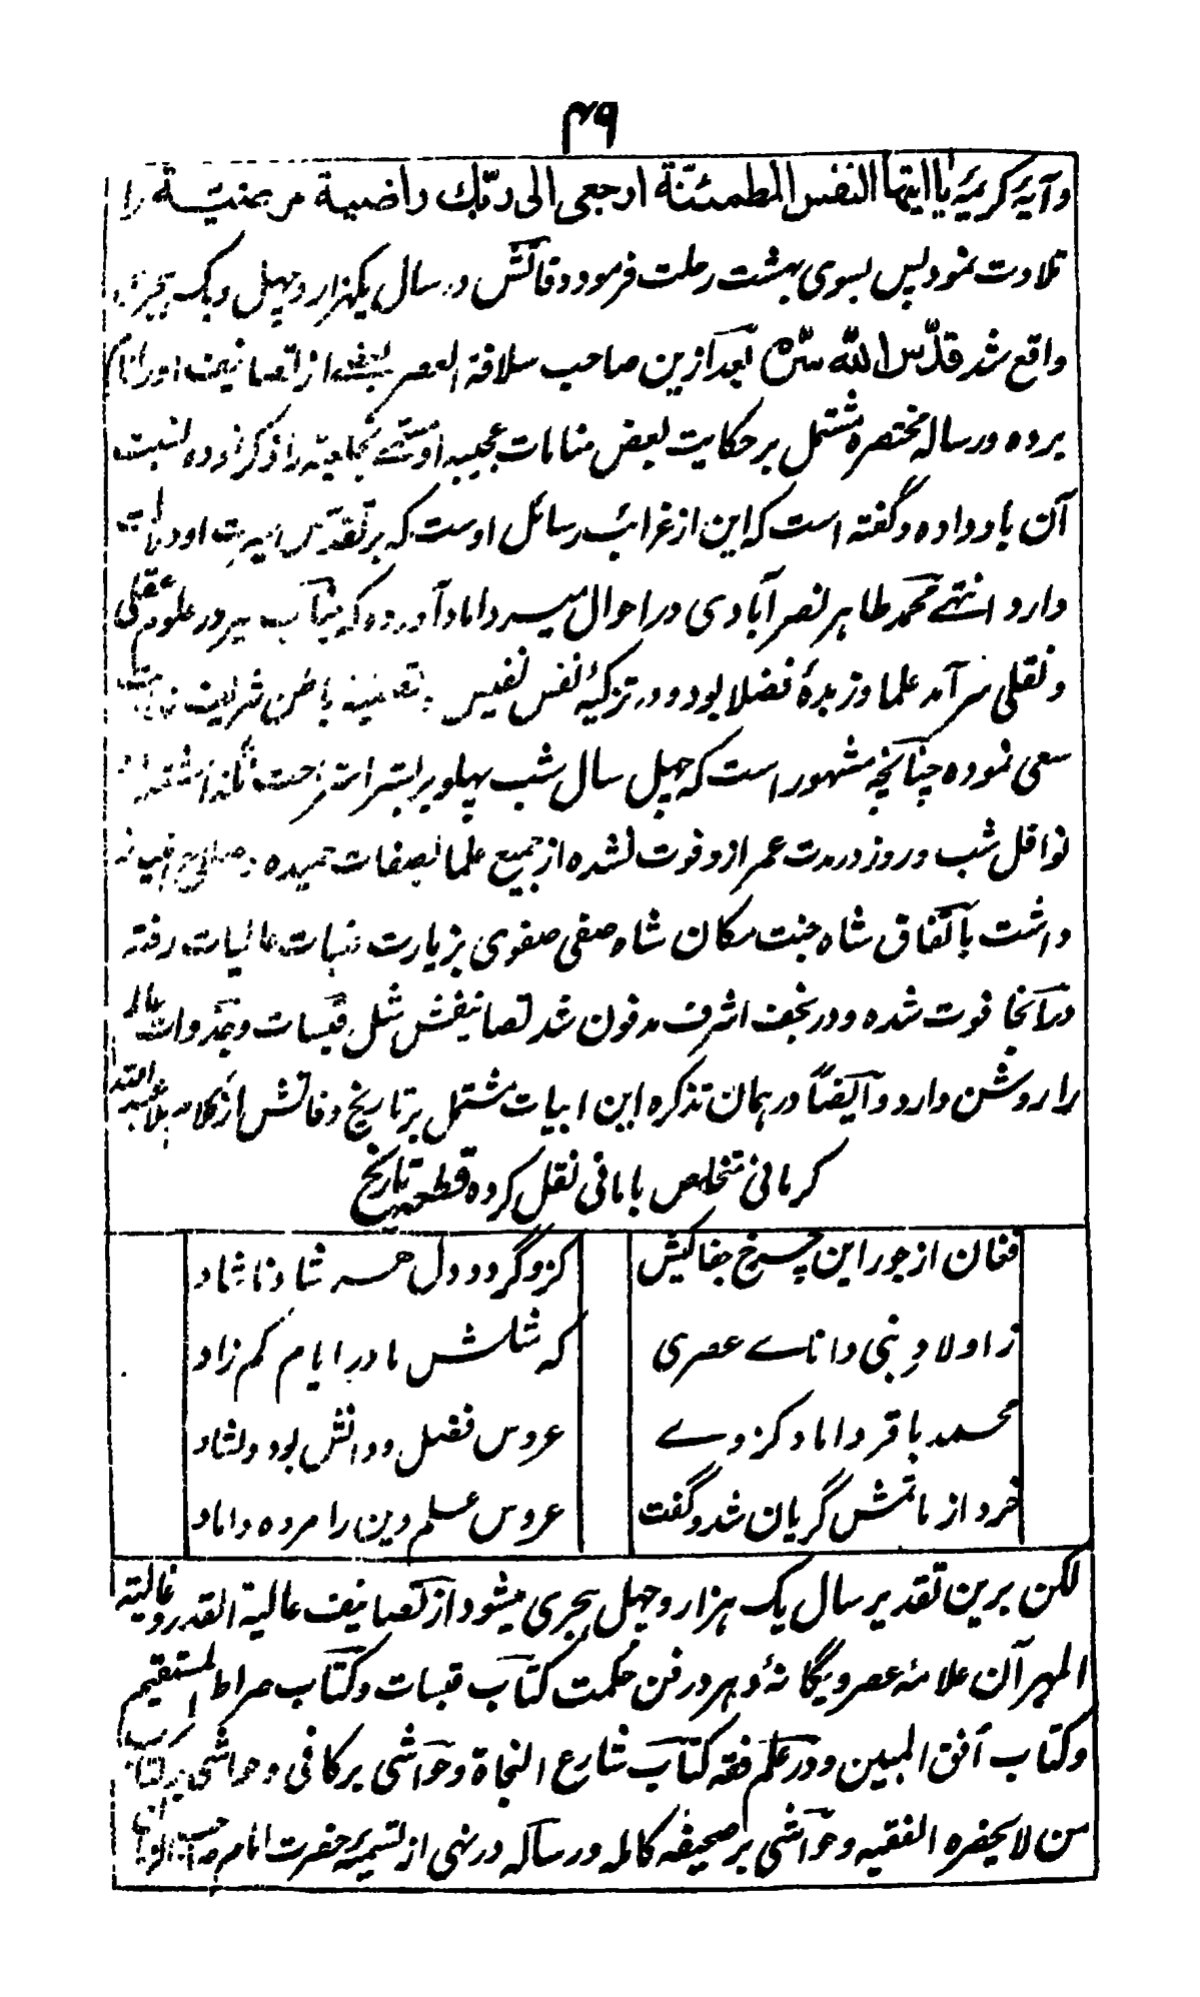 ۴۹
وآیۀ کریمۀ یا ایتها النفس المطمئنّة ارجعی الی ربّك راضیة مرضیّة را
تلاوت نمود پس بسوی بهشت رحلت فرمود وفاتش در سال یکهزار و چهل ویک هجری
واقع شد قدّس الله سرّه بعد ازین صاحب سلافة العصر بعضے از تصانیف او را نام
برده و رسالۀ مختصره مشتمل بر حکایت بعض منامات عجیبه او را ذکر نموده نسبت
آن باو داده و گفته است که این از غرائب رسائل اوست که بر تقدّس سیرت او دلالت
دارد انتهے محمد طاهر نصرآبادی در احوال میر داماد آورده که جناب میر در علوم عقلی
و نقلی سرآمد علما و زبدۀ فضلا بود و در تزکیۀ نفس نفیس و تصفیۀ باطن شریف نهایت
سعی نموده چنانچه مشهور است که چهل سال شب پهلو بر بستر استراحت نگذاشته
نوافل شب و روز در مدت عمر ازو فوت نشده از جمیع علما بصفات حمیده
داشت باتفاق شاه جنت مکان شاه صفی صفوی بزیارت عتبات عالیات رفته
در آنجا فوت شده و در نجف اشرف مدفون شد تصانیفش مثل قبسات و غیره دلها
را روشن دارد و ایضًا در همان تذکره این ابیات مشتمل بر تاریخ وفاتش از کلام ملا عبد الله
کرمانی متخلص بامانی نقل کرده قطعه تاریخ
فغان از جور این چرخ جفا کیش کزو گردد دل هر شاد ناشاد
ز اولادِ نبی داناے عصری که مثلش مادر ایام کم زاد
محمد باقر داماد کز وے عروس فضل و دانش بود دلشاد
خرد از ماتمش گریان شد و گفت عروس علم دین را مرده داماد
لکن برین تقدیر سال یک هزار و چهل هجری میشود از تصانیف عالیة القدر و غالیة
المهر آن علامۀ عصر و یگانۀ دهر در فن حکمت کتاب قبسات و کتاب صراط المستقیم
و کتاب أفق المبین و در علم فقه کتاب شارع النجاة و حواشی بر کافی و حواشی بر کتاب
من لا یحضره الفقیه و حواشی بر صحیفه کامله و رساله در نهی از تسمیۀ حضرت امام صاحب الزمان